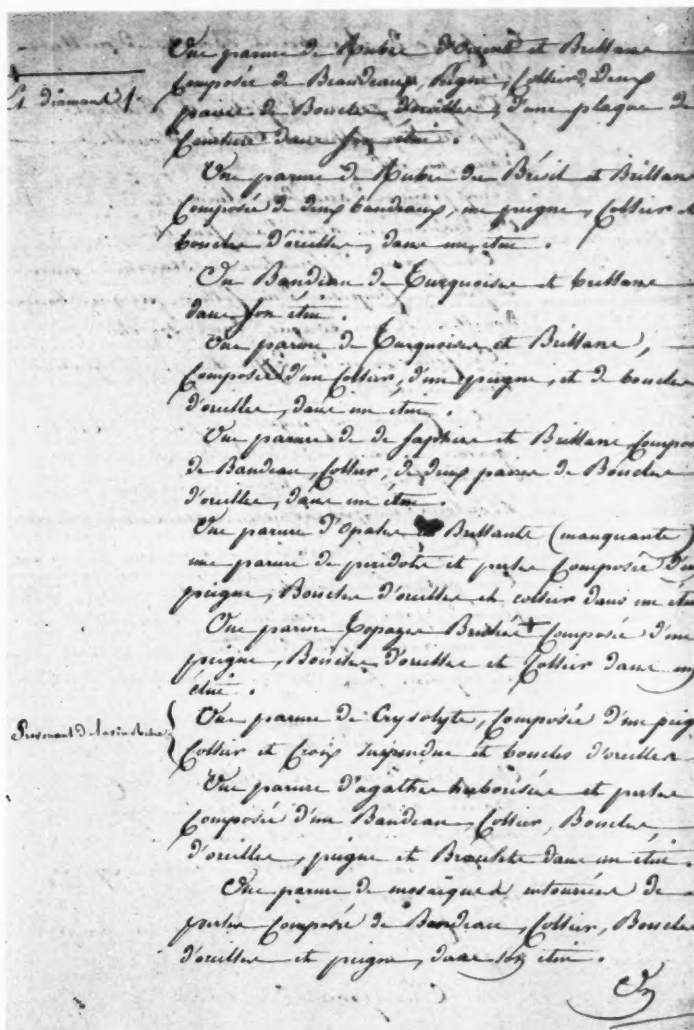 Une parure de Rubis d'Orient et Brillans
Composée de Bandeaux, Peigne, Collier, Deux
paires de Boucles d'oreilles, d'une plaque de
Ceinture dans son étui.
Une parure de Rubis du Brésil et Brillans
Composée de deux bandeaux, un peigne, Collier et
boucles d'oreilles, dans un étui.
Un Bandeau de Turquoises et brillans
dans son étui.
Une parure de Turquoises et Brillans,
Composée d'un Collier, d'un peigne, et de boucles
d'oreilles, dans un étui.
Une parure de de saphirs et Brillans Compos
de Bandeau, Collier, de deux paires de Boucles
d'oreilles, dans un étui.
Une parure d'opales Brillants (manquante)
une parure de peridots et perles Composée d'un
peigne, Boucles d'oreilles et collier dans un étui
Une parure Topazes Composée d'une
peigne, Boucles d'oreilles et Collier dans un
étui.
Une parure de Crysolyte, Composée d'un peig
Collier et Croix suspendue et boucles d'oreilles
Une parure d'agathes herborisées et perles
Composée d'un Bandeau, Collier, Boucles,
d'oreilles, peigne et Bracelets dans un étui.
Une parure de mosaïques entourées de
perles Composée de Bandeau, Collier, Boucles
d'oreilles et peigne, dans son étui.
Un